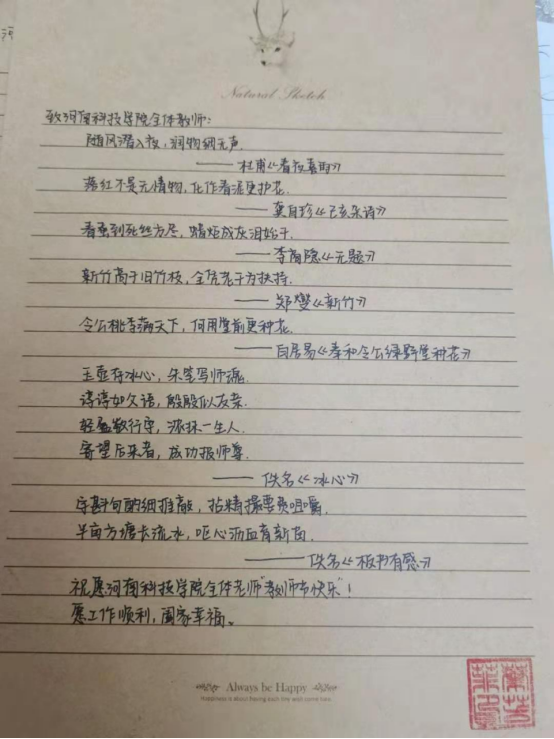 Natural Sketch
致河南科技学院全体教师:
随风潜入夜,润物细无声.
——杜甫《春夜喜雨》
落红不是无情物,化作春泥更护花.
——龚自珍《己亥杂诗》
春蚕到死丝方尽,蜡炬成灰泪始干.
——李商隐《无题》
新竹高于旧竹枝,全凭老干为扶持.
——郑燮《新竹》
令公桃李满天下,何用堂前更种花.
——白居易《奉和令公绿野堂种花》
玉壶存冰心,朱笔写师魂.
谆谆如父语,殷殷似友亲.
轻盈数行字,浓抹一生人.
寄望后来者,成功报师尊.
——佚名《冰心》
字斟句酌细推敲,拈精撮要费咀嚼.
半亩方塘长流水,呕心沥血育新苗.
——佚名《板书有感》
祝愿河南科技学院全体老师"教师节快乐"!
愿工作顺利,阖家幸福。
Always be Happy